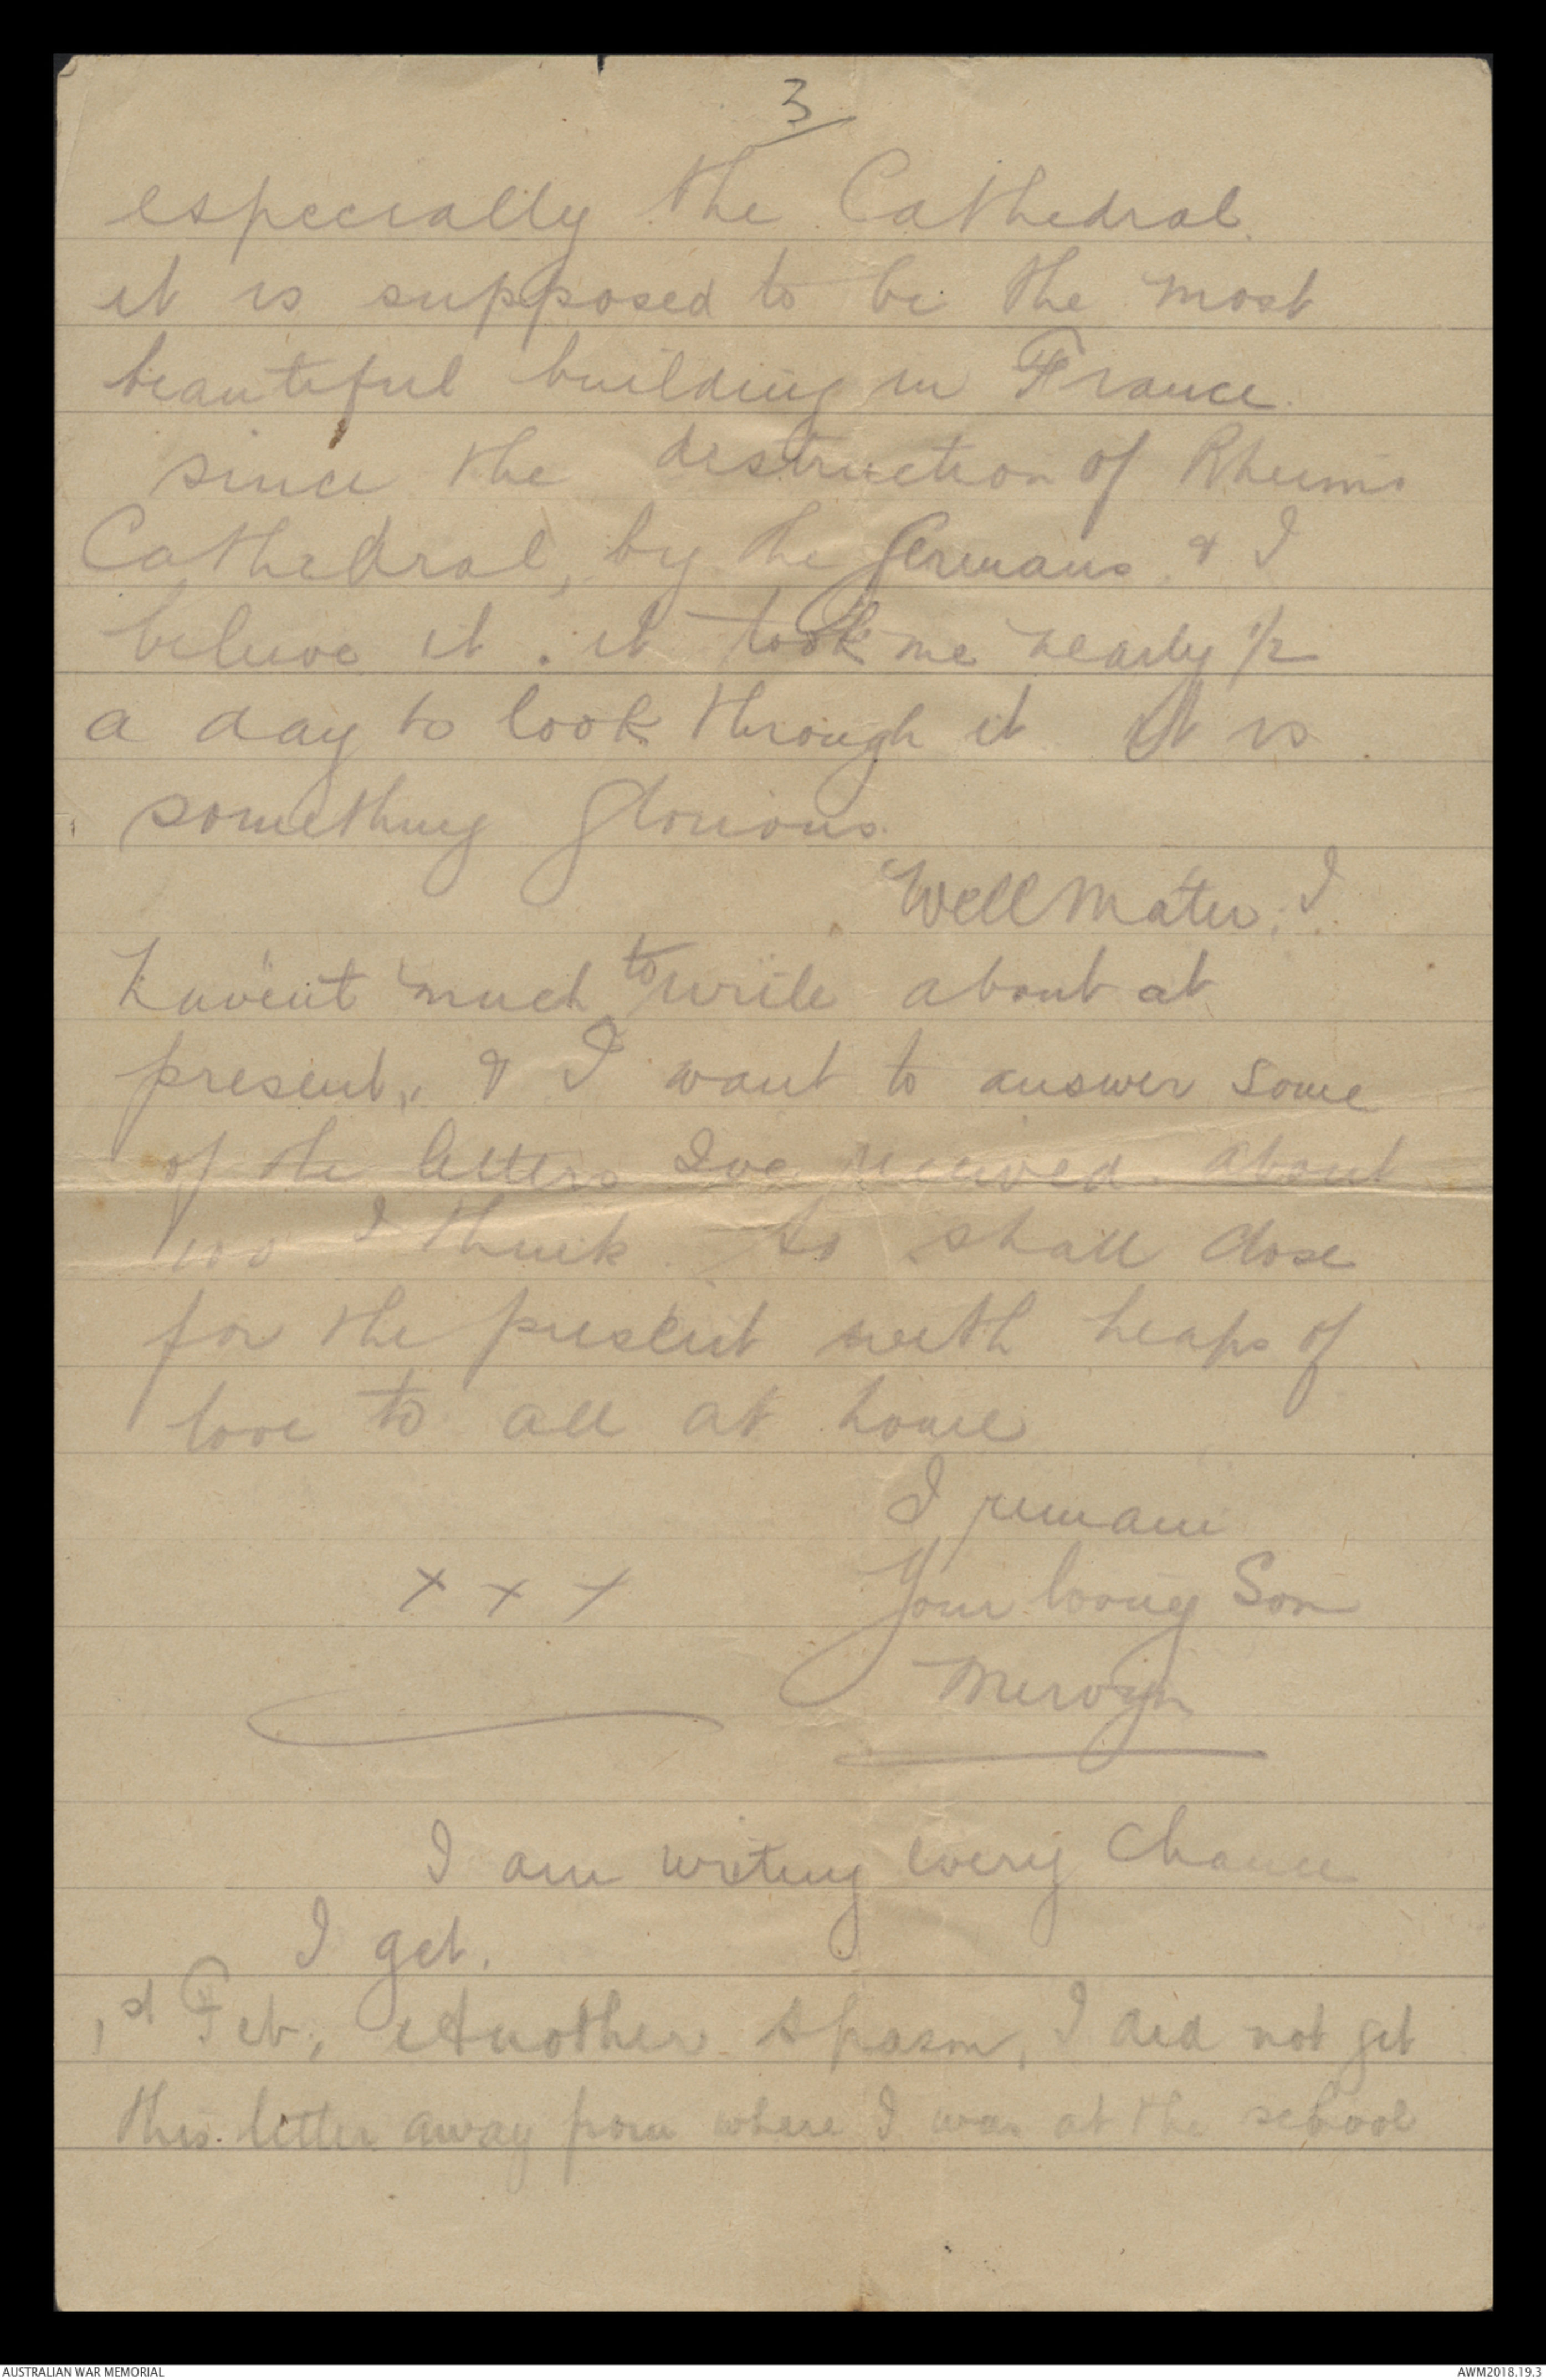 3
especially the Cathedral.
it is supposed to be the most
beautiful building in France.
since the destruction of Rheims
Cathedral, by the Germans, & I
believe it. it took me nearly 1/2
a day to look through it It is
something glorious.
Well Mater, I
haven't much to write about at
present, & I want to answer some
of the letters I've received. about
100 I think. So shall close
for the present with heaps of
love to all at home
I remain
x x x Your loving Son
Mervyn
I am writing every chance
I get.
1st Feb, Another spasm, I did not get
this letter away from where I was at the school
AUSTRALIAN WAR MEMORIAL AWM2018.19.3